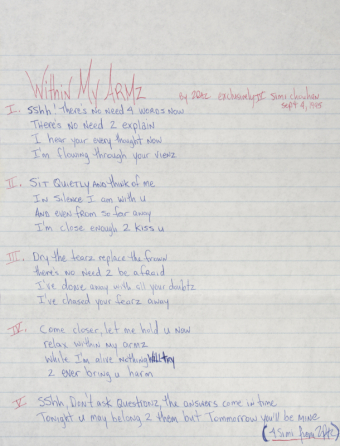 Within My ARMz
By 2PAC exclusively 4 Simi Chouhan
Sept 4, 1995
I. SShh! There's No Need 4 words Now
There's No Need 2 explain
I hear your every thought Now
I'm flowing through your vienz
II. Sit Quietly And think of me
In Silence I am with u
And even from so far away
I'm close enough 2 kiss u
III. Dry the fearz replace the frown
there's no need 2 be afraid
I've done away with all your doubtz
I've chased your fearz away
IV. Come closer, let me hold u Now
relax within my armz
While I'm alive nothing will try
2 ever bring u harm
V SShh, Don't ask Questionz, the answers come in time
Tonight u may belong 2 them but Tommorrow you'll be Mine
(4 Simi from 2PAC)